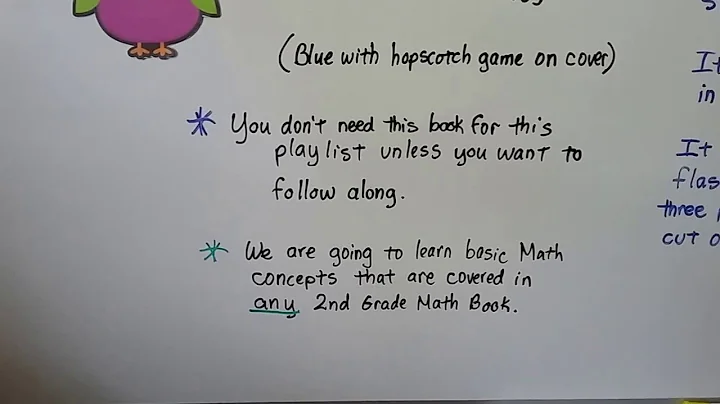 (Blue with hopscotch game on cover)
* You don't need this book for this
playlist unless you want to
follow along.
* We are going to learn basic Math
concepts that are covered in
any 2nd Grade Math Book.
It
in
It
three
cut